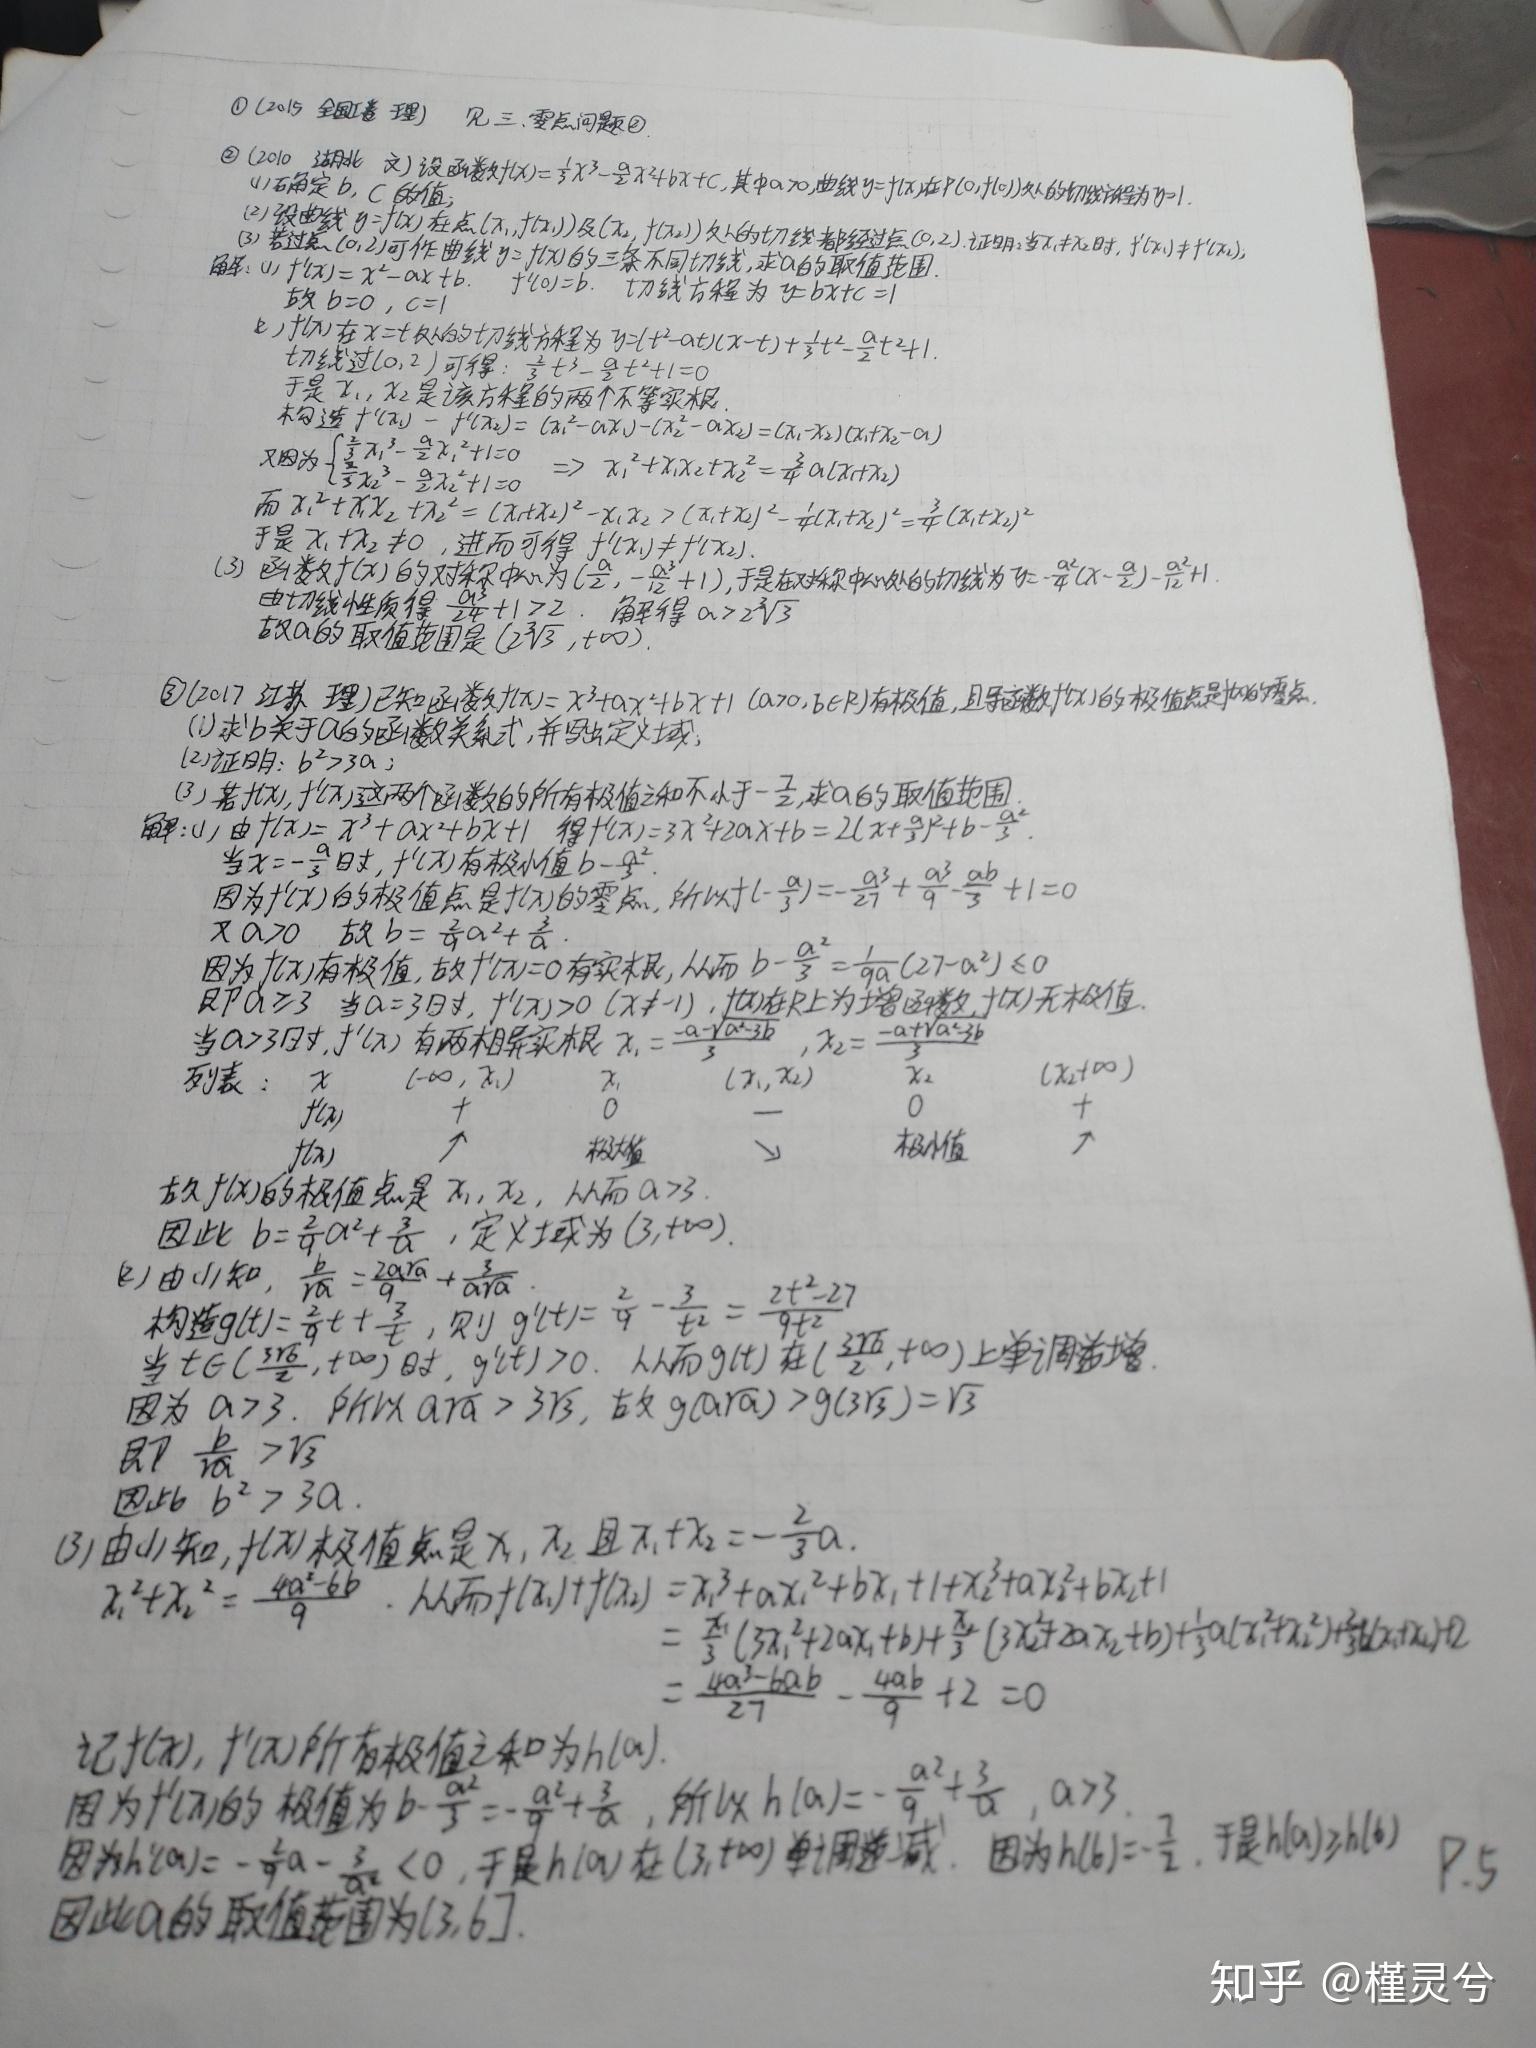 ①(2015 全国Ⅰ卷 理) 见三、零点问题②.
②(2010 湖北 文)设函数f(x)=⅓x³-a/2x²+bx+c,其中a>0,曲线y=f(x)在P(0,f(0))处的切线方程为y=1.
(1)确定b,c的值;
(2)设曲线y=f(x)在点(x₁,f(x₁))及(x₂,f(x₂))处的切线都经过点(0,2).证明:当x₁≠x₂时,f'(x₁)≠f'(x₂);
(3)若过点(0,2)可作曲线y=f(x)的三条不同切线,求a的取值范围.
解:(1) f'(x)=x²-ax+b. f'(0)=b. 切线方程为 y=bx+c=1
故b=0, c=1
(2) f(x)在x=t处的切线方程为y=(t²-at)(x-t)+⅓t²-a/2t²+1.
切线过(0,2)可得: ⅔t³-a/2t²+1=0
于是x₁,x₂是该方程的两个不等实根.
构造f'(x₁)-f'(x₂)=(x₁²-ax₁)-(x₂²-ax₂)=(x₁-x₂)(x₁+x₂-a)
又因为{⅔x₁³-a/2x₁²+1=0
⅔x₂³-a/2x₂²+1=0 => x₁²+x₁x₂+x₂²=¾a(x₁+x₂)
而x₁²+x₁x₂+x₂²=(x₁+x₂)²-x₁x₂>(x₁+x₂)²-¼(x₁+x₂)²=¾(x₁+x₂)²
于是x₁+x₂≠0,进而可得f'(x₁)≠f'(x₂).
(3) 函数f(x)的对称中心为(a/2, -a³/12+1),于是在对称中心处的切线为y=-a²/4(x-a/2)-a²/12+1.
由切线性质得 a³/24+1>2. 解得a>2∛3
故a的取值范围是(2∛3,+∞).
③(2017 江苏 理)已知函数f(x)=x³+ax²+bx+1(a>0,b∈R)有极值,且导函数f'(x)的极值点是f(x)的零点.
(1)求b关于a的函数关系式,并写出定义域;
(2)证明: b²>3a;
(3)若f(x),f'(x)这两个函数的所有极值之和不小于-7/2,求a的取值范围.
解:(1)由f(x)=x³+ax²+bx+1 得f'(x)=3x²+2ax+b=2(x+a/3)²+b-a²/3.
当x=-a/3时,f'(x)有极小值b-a²/3.
因为f'(x)的极值点是f(x)的零点,所以f(-a/3)=-a³/27+a³/9-ab/3+1=0
又a>0 故b=2/9a²+3/a.
因为f(x)有极值,故f'(x)=0有实根,从而b-a²/3=1/9a(27-a²)≤0
即a≥3 当a=3时, f'(x)>0 (x≠-1), f(x)在R上为增函数,f(x)无极值.
当a>3时,f'(x)有两相异实根x₁=(-a-√(a²-3b))/3, x₂=(-a+√(a²-3b))/3
列表: x (-∞,x₁) x₁ (x₁,x₂) x₂ (x₂+∞)
f'(x) + 0 — 0 +
f(x) ↗ 极大值 ↘ 极小值 ↗
故f(x)的极值点是x₁,x₂,从而a>3.
因此b=2/9a²+3/a,定义域为(3,+∞).
(2)由(1)知, b/√a=2a√a/9+3/a√a.
构造g(t)=2/9t+3/t,则g'(t)=2/9-3/t²=(2t²-27)/9t²
当t∈(3√6/2,+∞)时,g'(t)>0. 从而g(t)在(3√6/2,+∞)上单调递增.
因为a>3. 所以a√a>3√3,故g(a√a)>g(3√3)=√3
即 b/√a>√3
因此 b²>3a.
(3)由(1)知,f(x)极值点是x₁,x₂且x₁+x₂=-⅔a.
x₁²+x₂²=(4a²-6b)/9. 从而f(x₁)+f(x₂)=x₁³+ax₁²+bx₁+1+x₂³+ax₂²+bx₂+1
=x₁/3(3x₁²+2ax₁+b)+x₂/3(3x₂²+2ax₂+b)+⅓a(x₁²+x₂²)+⅔b(x₁+x₂)+2
=(4a³-6ab)/27-4ab/9+2=0
记f(x),f'(x)所有极值之和为h(a).
因为f'(x)的极值为b-a²/3=-a²/9+3/a,所以h(a)=-a²/9+3/a, a>3.
因为h'(a)=-2/9a-3/a²<0,于是h(a)在(3,+∞)单调递减. 因为h(6)=-7/2,于是h(a)≥h(6)
因此a的取值范围为(3,6].
P.5
知乎 @槿灵兮